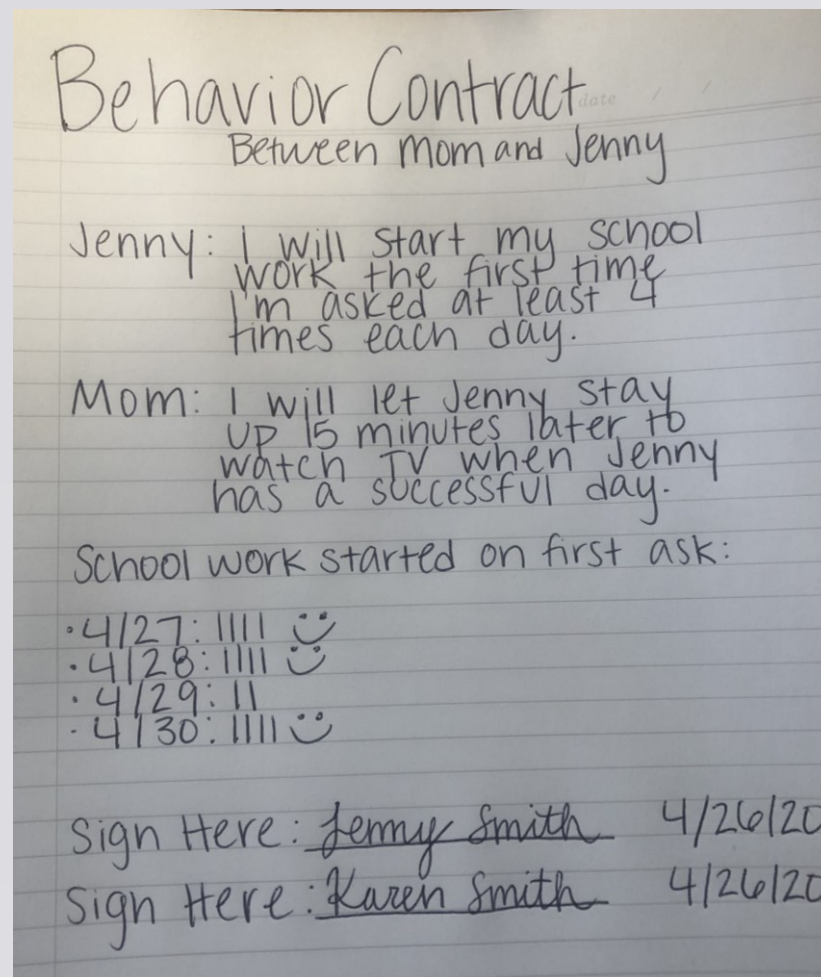 Behavior Contract
date / /
Between Mom and Jenny
Jenny: I will start my school
work the first time
I'm asked at least 4
times each day.
Mom: I will let Jenny stay
up 15 minutes later to
watch TV when Jenny
has a successful day.
School work started on first ask:
· 4/27: |||| :)
· 4/28: |||| :)
· 4/29: ||
· 4/30: |||| :)
Sign Here: Jenny Smith 4/26/20
Sign Here: Karen Smith 4/26/20